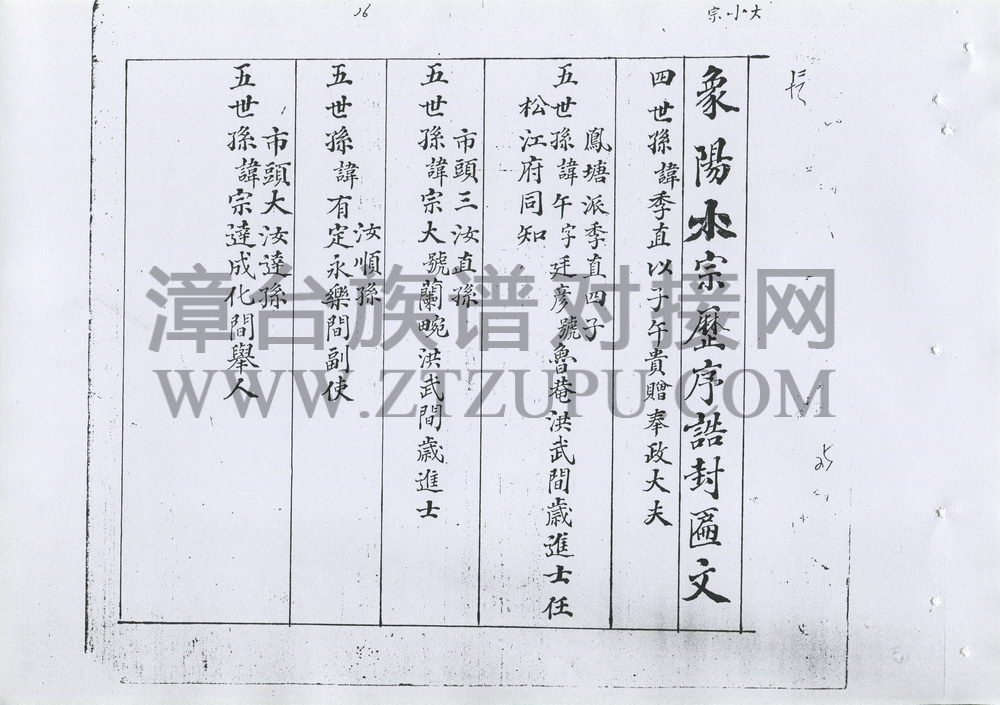 象陽小宗歷序誥封匾文
四世孫諱季直以子午貴贈奉政大夫
鳳塘派季直四子
五世孫諱午字廷彥號魯菴洪武間歲進士任
松江府同知
市頭三汝直孫
五世孫諱宗大號蘭畹洪武間歲進士
汝順孫
五世孫諱有定永樂間副使
市頭大汝達孫
五世孫諱宗達成化間舉人
大小宗
16
漳台族谱对接网
WWW.ZTZUPU.COM